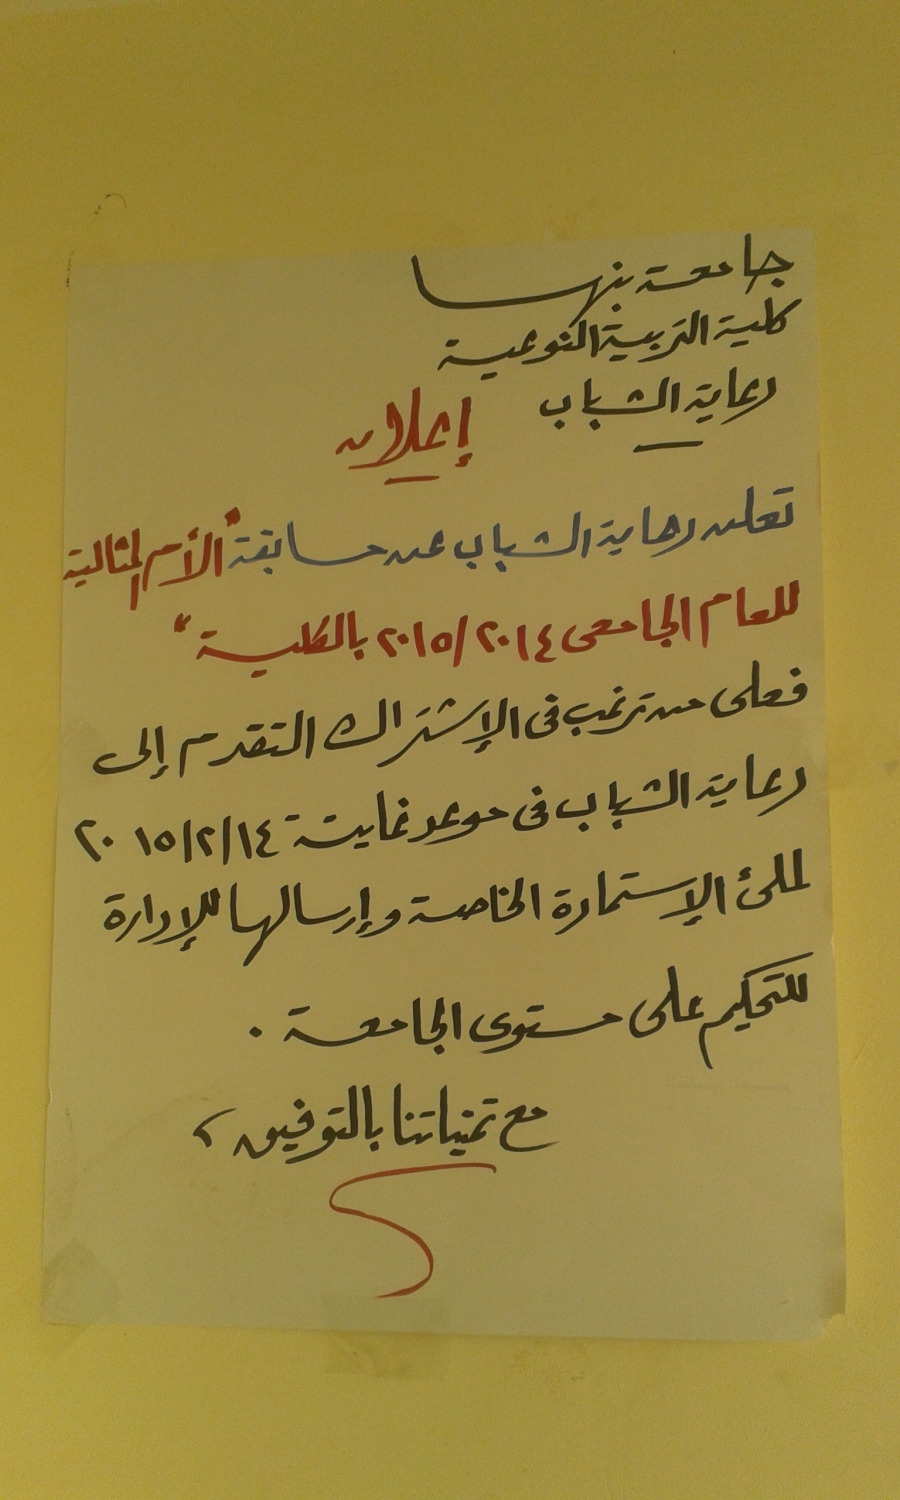 جامعة بنها
كلية التربية النوعية
رعاية الشباب
إعلان
تعلن رعاية الشباب عن مسابقة "الأم المثالية
للعام الجامعى ٢٠١٥/٢٠١٤ بالكلية"
فعلى من ترغب فى الإشتراك التقدم إلى
رعاية الشباب فى موعد غايتة ٢٠١٥/٢/١٤
لملئ الإستمارة الخاصة وإرسالها للإدارة
للتحكيم على مستوى الجامعة .
مع تمنياتنا بالتوفيق ،